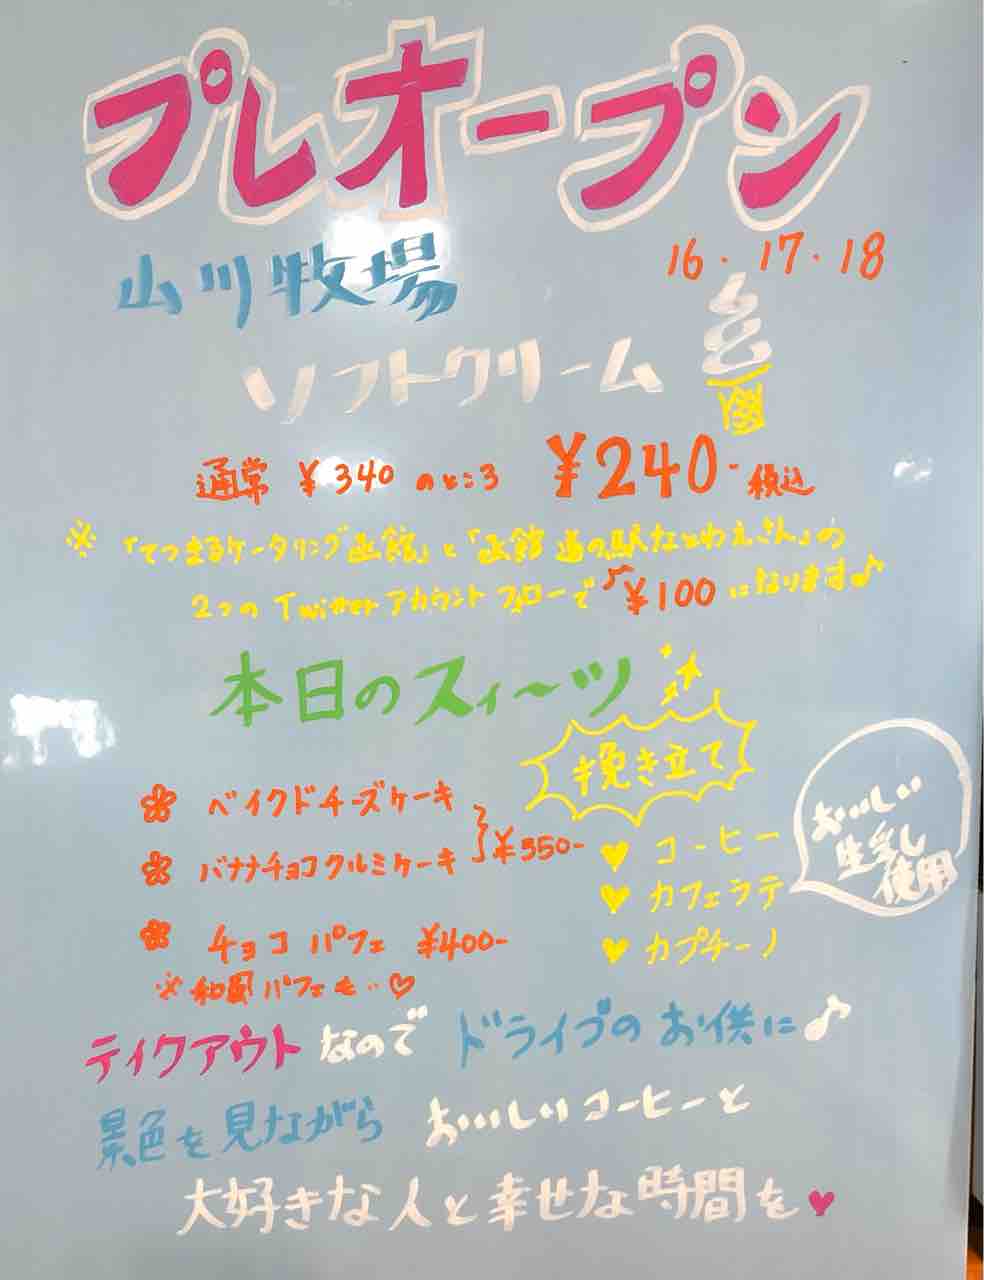 プレオープン
山川牧場
16・17・18
ソフトクリーム
通常 ¥340 のところ ¥240- 税込
※「てつまるケータリング函館」と「函館 道の駅なとわえさん」の
2つの Twitterアカウント フォローで ¥100 になります♪
本日のスィ～ツ
ベイクドチーズケーキ
バナナチョコクルミケーキ
¥350-
チョコ パフェ ¥400-
※和風パフェも‥♡
挽き立て
♥ コーヒー
♥ カフェラテ
♥ カプチーノ
おいしい
生乳し
使用
ティクアウト なので ドライブの お供に♪
景色を見ながら おいしいコーヒーと
大好きな人と幸せな時間を♥